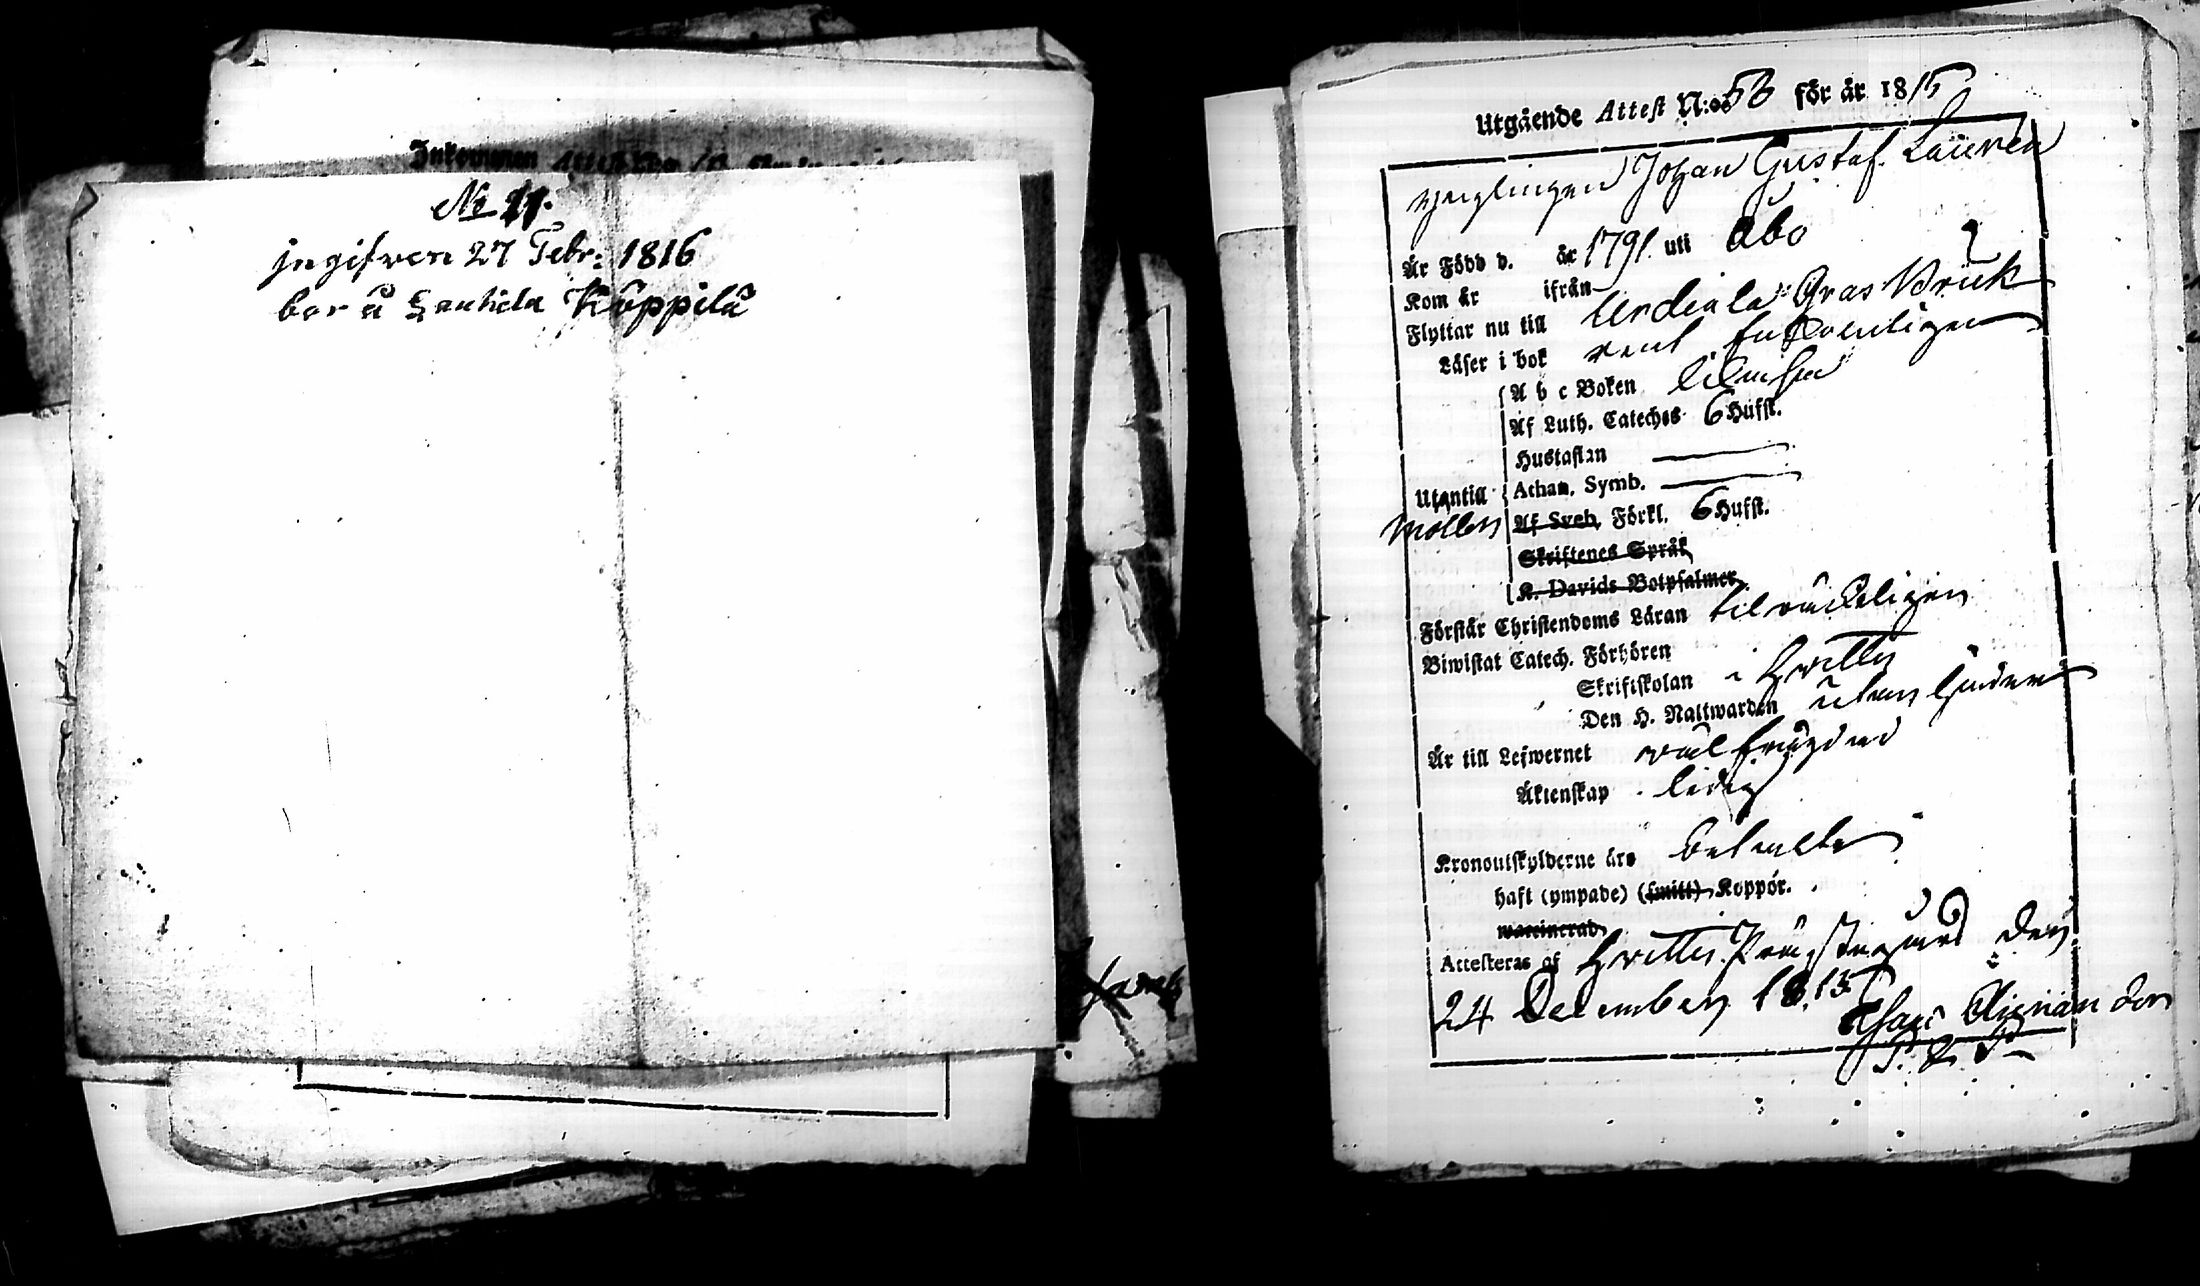 Inkommen Attest
No 11.
ingifven 27 Febr: 1816
bor å Lauhela Kåppilä
Utgående Attest N:o 53 för år 1815
ynglingen Johan Gustaf Lauren
Är Född d. år 1791. uti Åbo
Kom år ifrån
Flyttar nu till Urdiala Glas Bruk
Läser i bok rent
A b c Boken
Af Luth. Cateches 6 Hufst.
Hustaflan
Utantill Athan. Symb.
Mollers Af Sveb. Förkl. 6 Hufst.
Skriftenes Språk
K. Davids Botpsalmer
Förstår Christendoms Läran tilräckeligen
Biwistat Catech. Förhören
Skriftskolan i Hvittis
Den H. Nattwarden utan hinder
Är till Lefwernet väl frägdad
Äktenskap ledig
Kronoutskylderne äro betalte
haft (ympade) (smitt) Koppor.
waccinerad
Attesteras af Hvittis Prästegård den
24 December 1815.